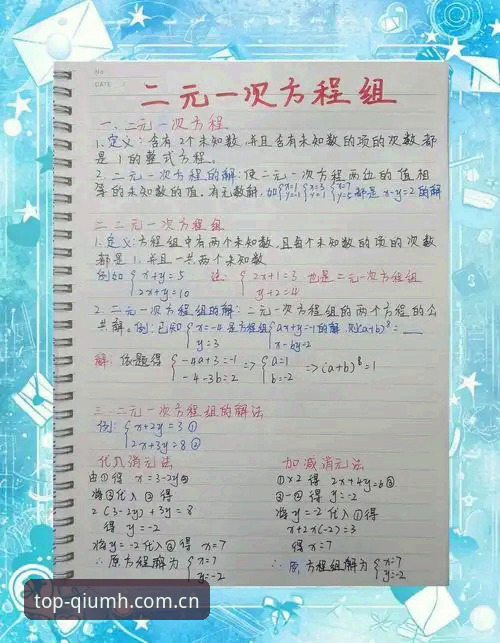 No
DATE
二元一次方程组
一. 二元一次方程
1. 定义: 含有2个未知数, 并且含有未知数的项的次数都
是1的整式方程。
2. 二元一次方程的解: 使二元一次方程两边的值相
等的未知数的值. 有无数解, 如{x=1 y=-1 {x=3 y=1 {x=7 y=5 都是x-y=2的解
二. 二元一次方程组
1. 定义: 方程组中有两个未知数, 且每个未知数的项的次数
都是1, 并且一共两个未知数
例如 {x+y=5 2x+y=10 注: {2x+1=3 y+2=4 也是二元一次方程组
2. 二元一次方程组的解: 二元一次方程组的两个方程的公
共解. 例: 已知{x=-4 y=3 是方程组{ax+y=-1 x-by=2 的解, 则(a+b)⁸=___
解: 依题得 {-4a+3=-1 -4-3b=2 => {a=1 b=-2 => (a+b)⁸=1
三. 二元一次方程组的解法
例: {x+2y=3 ① 2x+3y=8 ②
代入消元法
由①得 x=3-2y③
将③代入②得
2(3-2y)+3y=8
得 y=-2
将y=-2代入③得 x=7
∴原方程解为{x=7 y=-2
加减消元法
①×2得 2x+4y=6③
③-②得 y=-2
将y=-2代入①得
x+2×(-2)=3
得x=7
∴原方程组解为{x=7 y=-2
top-qiumh.com.cn